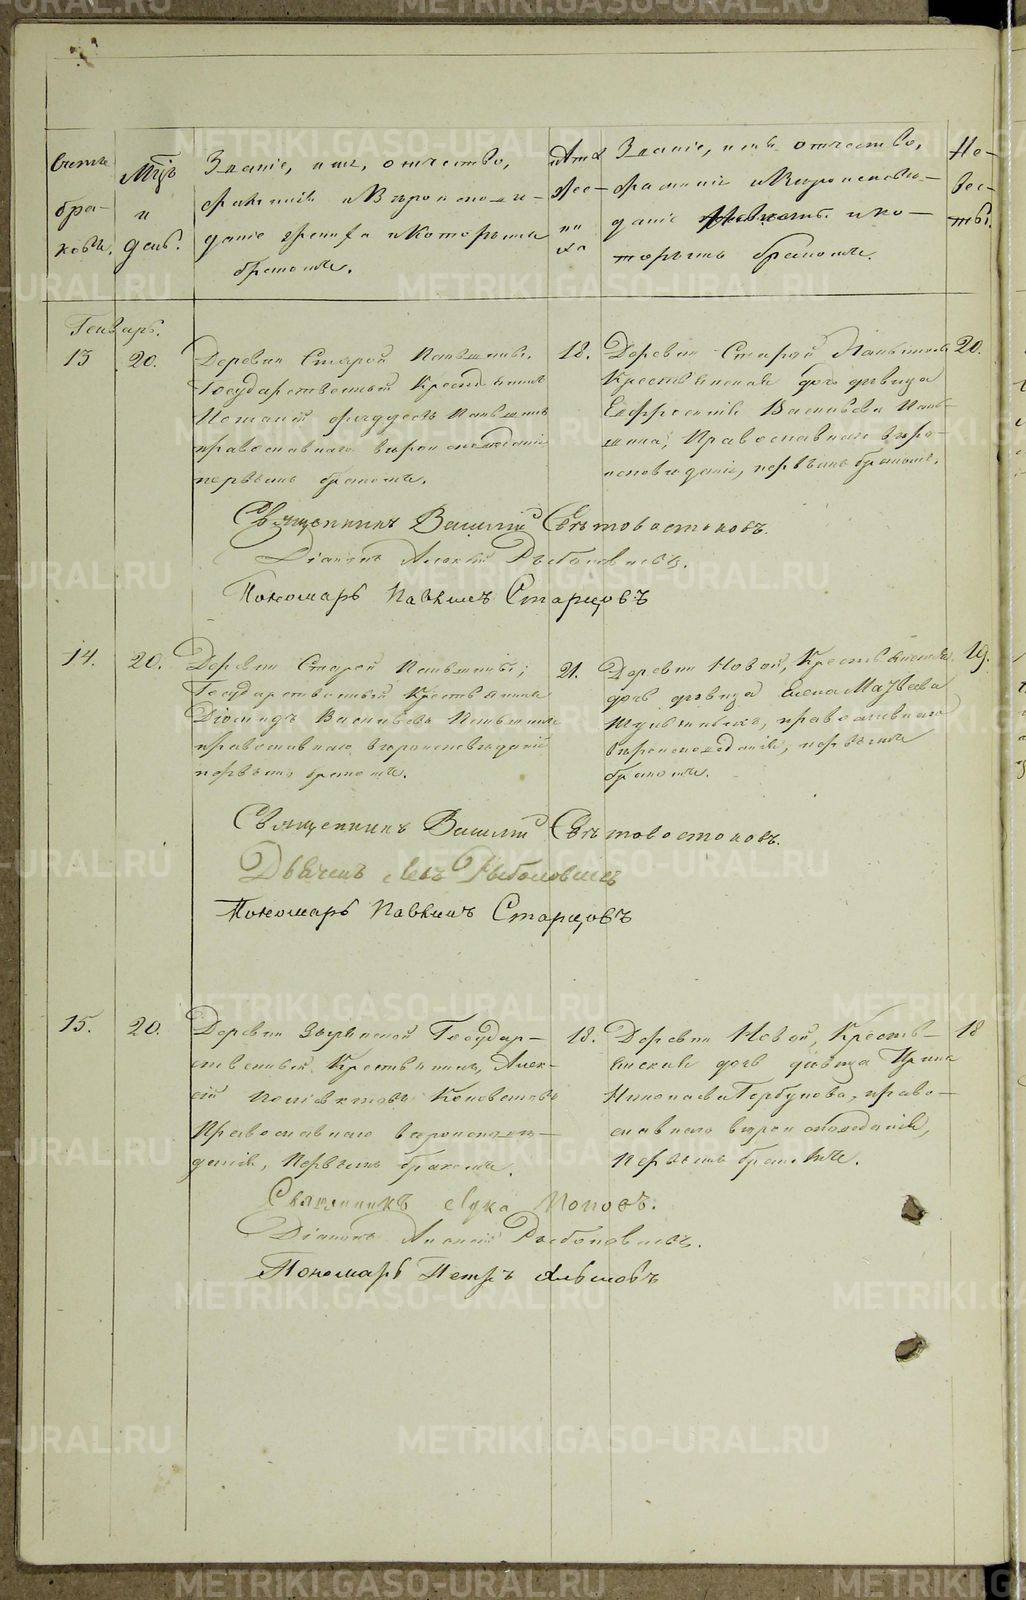 Счетъ браковъ.
Мцъ и день.
Званіе, имя, отчество, фамилія и Вѣроисповѣданіе жениха и Которымъ бракомъ.
лѣта жениха
Званіе, имя, отчество, фамилія и Вѣроисповѣданіе невѣсты и которымъ бракомъ.
невѣсты.
Генварь.
13
20.
Деревни Старой Паньшины.
Государственный Крестьянинъ
Паньшинъ
православнаго вѣроисповѣданія
первымъ бракомъ.
18.
Деревни Старой Паньшины
Крестьянская дочь дѣвица
Евфросинія Васильева Пань-
шина, Православнаго вѣро-
исповѣданія, первымъ бракомъ.
20.
Священникъ Василій Свѣтовостоковъ.
Діаконъ Алексій Рыболовлевъ.
Пономарь Павелъ Старцовъ
14.
20.
Деревни Старой Паньшины;
Государственный Крестьянинъ
Діомидъ Васильевъ Паньшинъ
православнаго вѣроисповѣданія
первымъ бракомъ.
21.
Деревни Новой, Крестьянская
дочь дѣвица Елена Матвѣева
православнаго
вѣроисповѣданія, первымъ
бракомъ.
19.
Священникъ Василій Свѣтовостоковъ.
Рыболовлевъ
Пономарь Павелъ Старцовъ
15.
20.
Деревни Зырянской Государ-
ственный Крестьянинъ, Алек-
сій Коноваловъ
Православнаго вѣроисповѣ-
данія, Первымъ бракомъ.
18.
Деревни Новой, Кресть-
янская дочь дѣвица Ирина
Николаева Горбунова, право-
славнаго вѣроисповѣданія,
Первымъ бракомъ.
18
Священникъ Лука Поповъ.
Діаконъ Алексій Рыболовлевъ.
Пономарь Петръ
METRIKI.GASO-URAL.RU